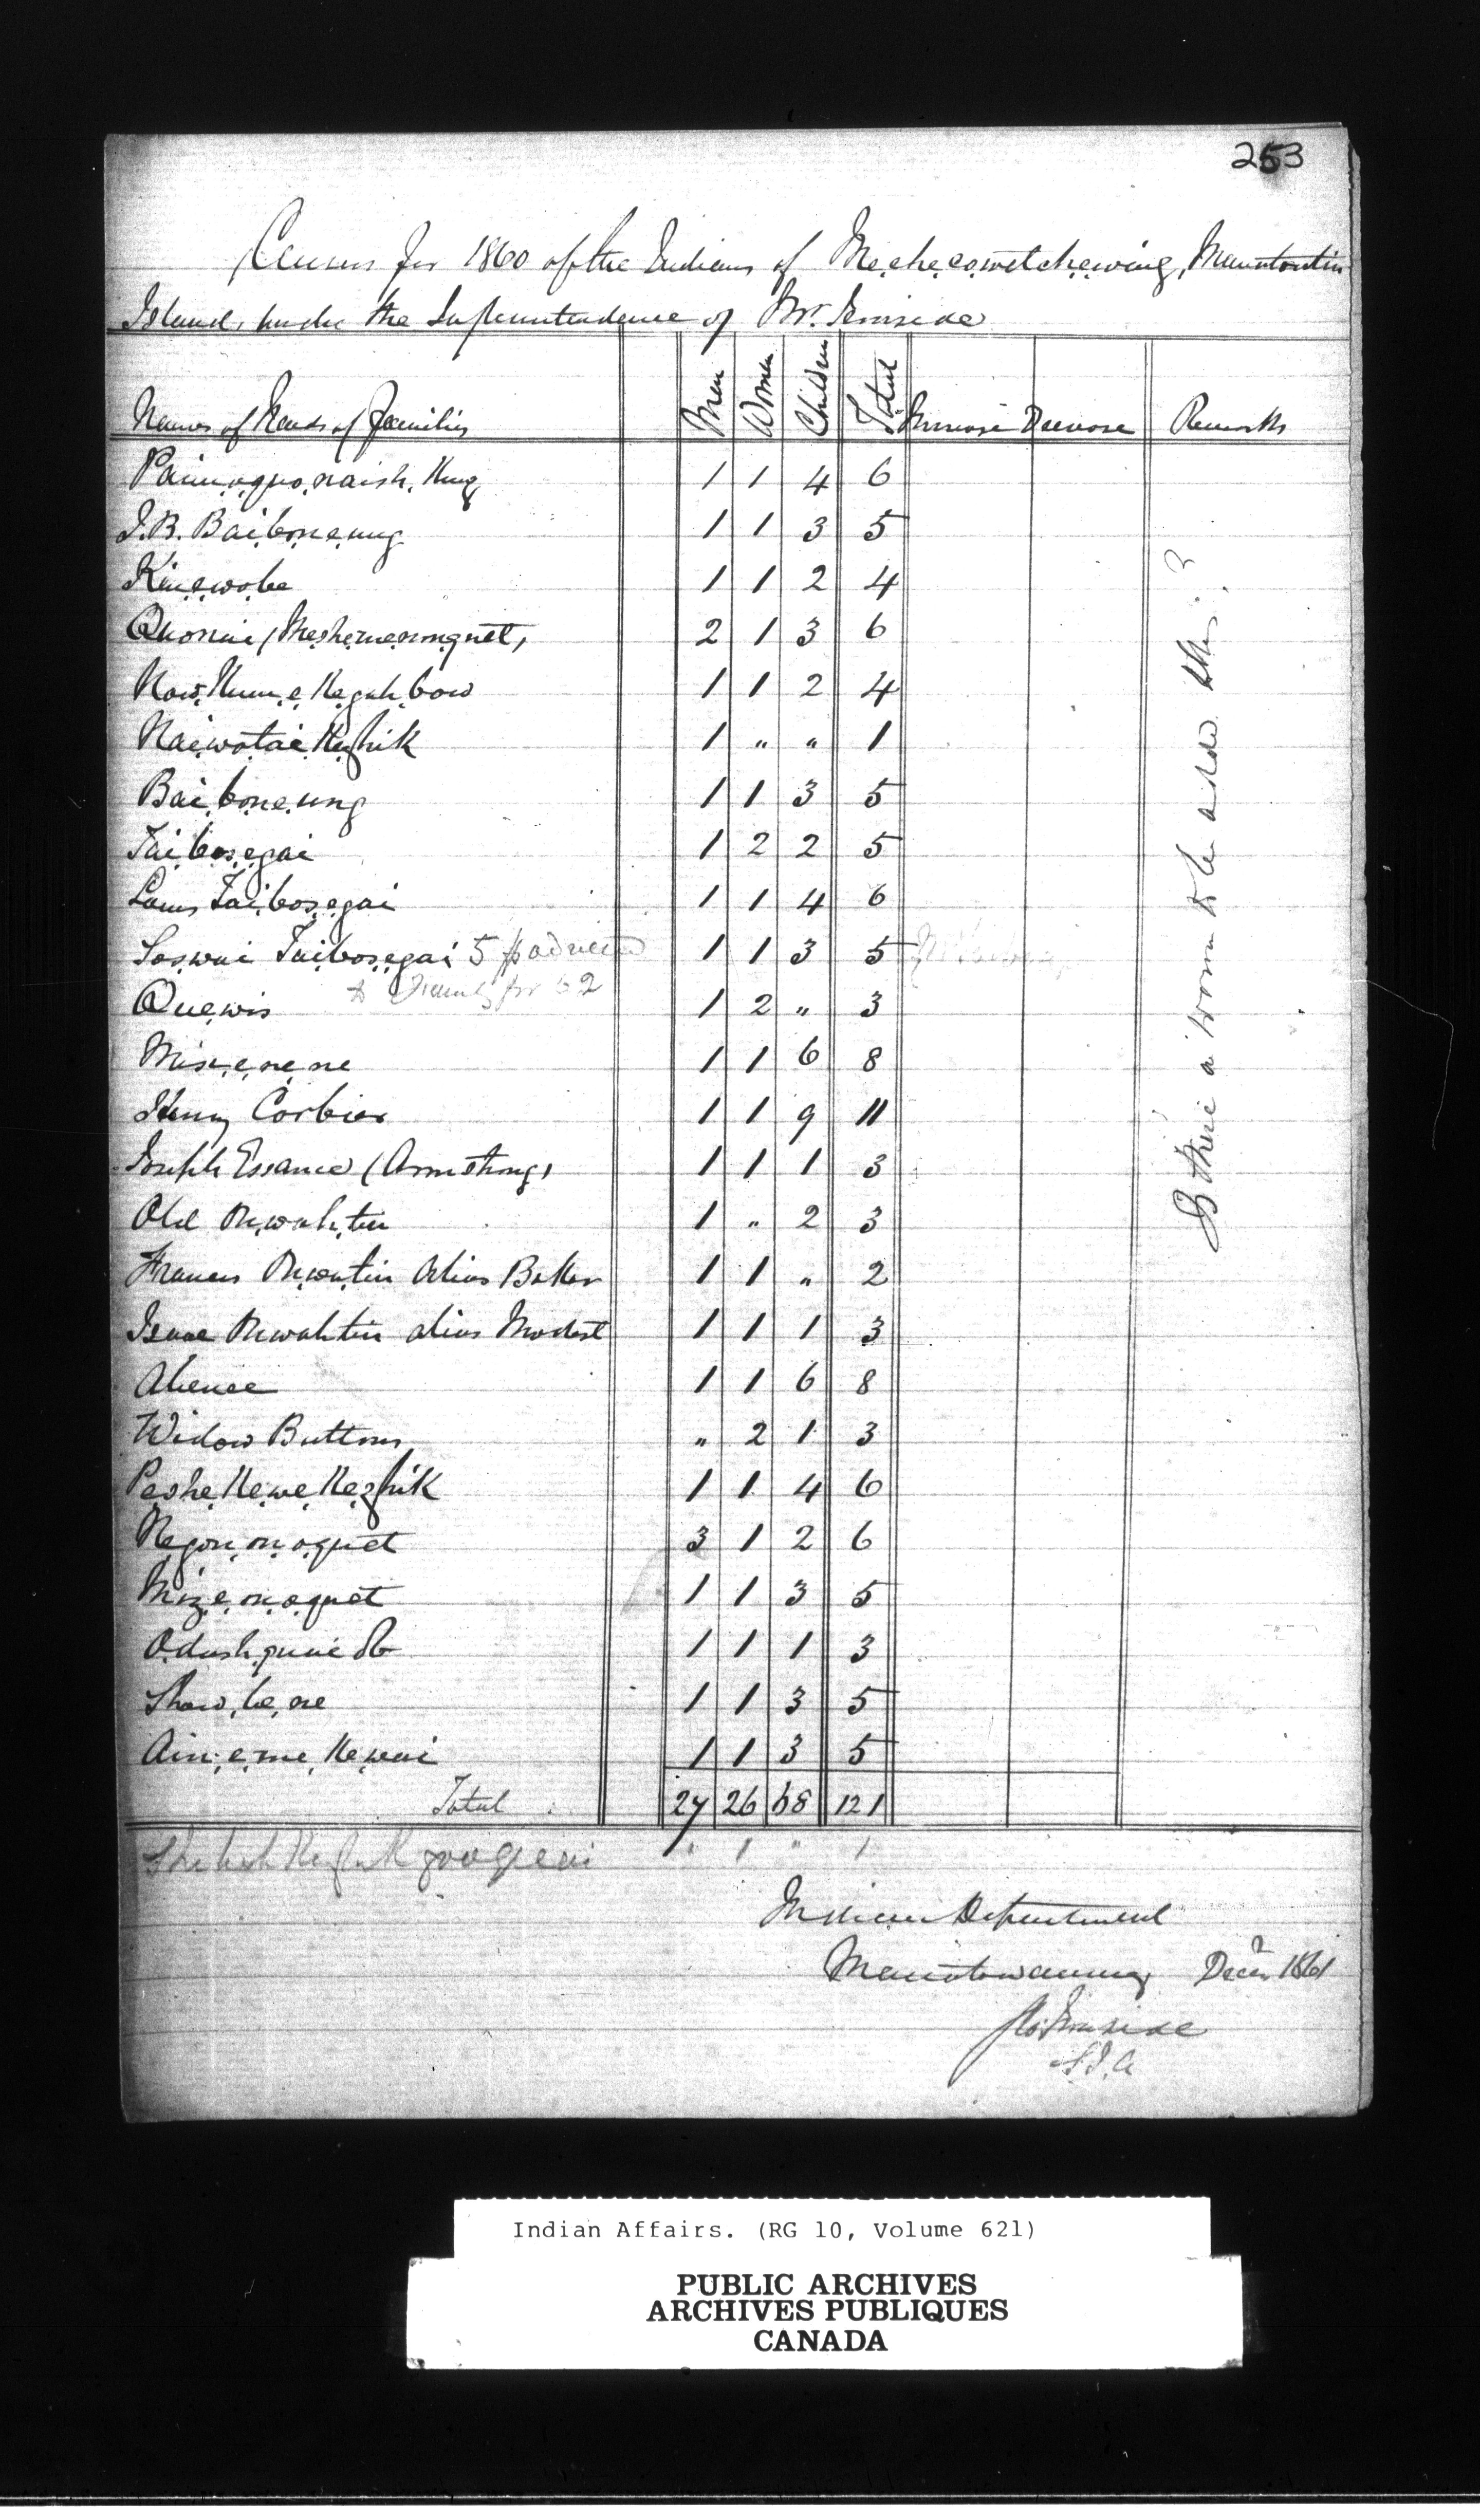 253
Census for 1860 of the Indians of Me.che.co.wetche.wing, Manntoutin
Island, under the Superintendence of Mr. Ironside
Names of Heads of Families Men Women Children Total Increase Decrease Remarks
Paim.o.quo.naish.King 1 1 4 6
J.B. Bai.bone.ung 1 1 3 5
Kin.e.wobe 1 1 2 4
Quonui (Meshemenonquet) 2 1 3 6
Now.Kum.e.Ke.guh.bow 1 1 2 4
Nai.wotai.Kezhik 1 " " 1
Bai.bone.ung 1 1 3 5
Tai.bos.egai 1 2 2 5
Louis Tai.bos.egai 1 1 4 6
Soswai Taibos.egai 5 1 1 3 5
Family for 62
Que.wis 1 2 " 3
Misc.e.ne.ne 1 1 6 8
Henry Corbier 1 1 9 11
Joseph Essance (Armstrong) 1 1 1 3
Old Newah.tin 1 " 2 3
Francis Newatin Alias Baker 1 1 " 2
Isaac Newahtin alias Modest 1 1 1 3
Abence 1 1 6 8
Widow Buttons " 2 1 3
Peshe.Kewe.Kezhik 1 1 4 6
Negon.on.oquet 3 1 2 6
Miz.e.on.oquet 1 1 3 5
O.dush.quaie.ob 1 1 1 3
Shaw.be.ne 1 1 3 5
Ain.e.me.Ke.wai 1 1 3 5
Total 27 26 68 121
" 1 " 1
Is there a woman to be added this.?
Indian Department
Manitowaning Decr 1861
Ironside
S.I.A
Indian Affairs. (RG 10, Volume 621)
PUBLIC ARCHIVES
ARCHIVES PUBLIQUES
CANADA